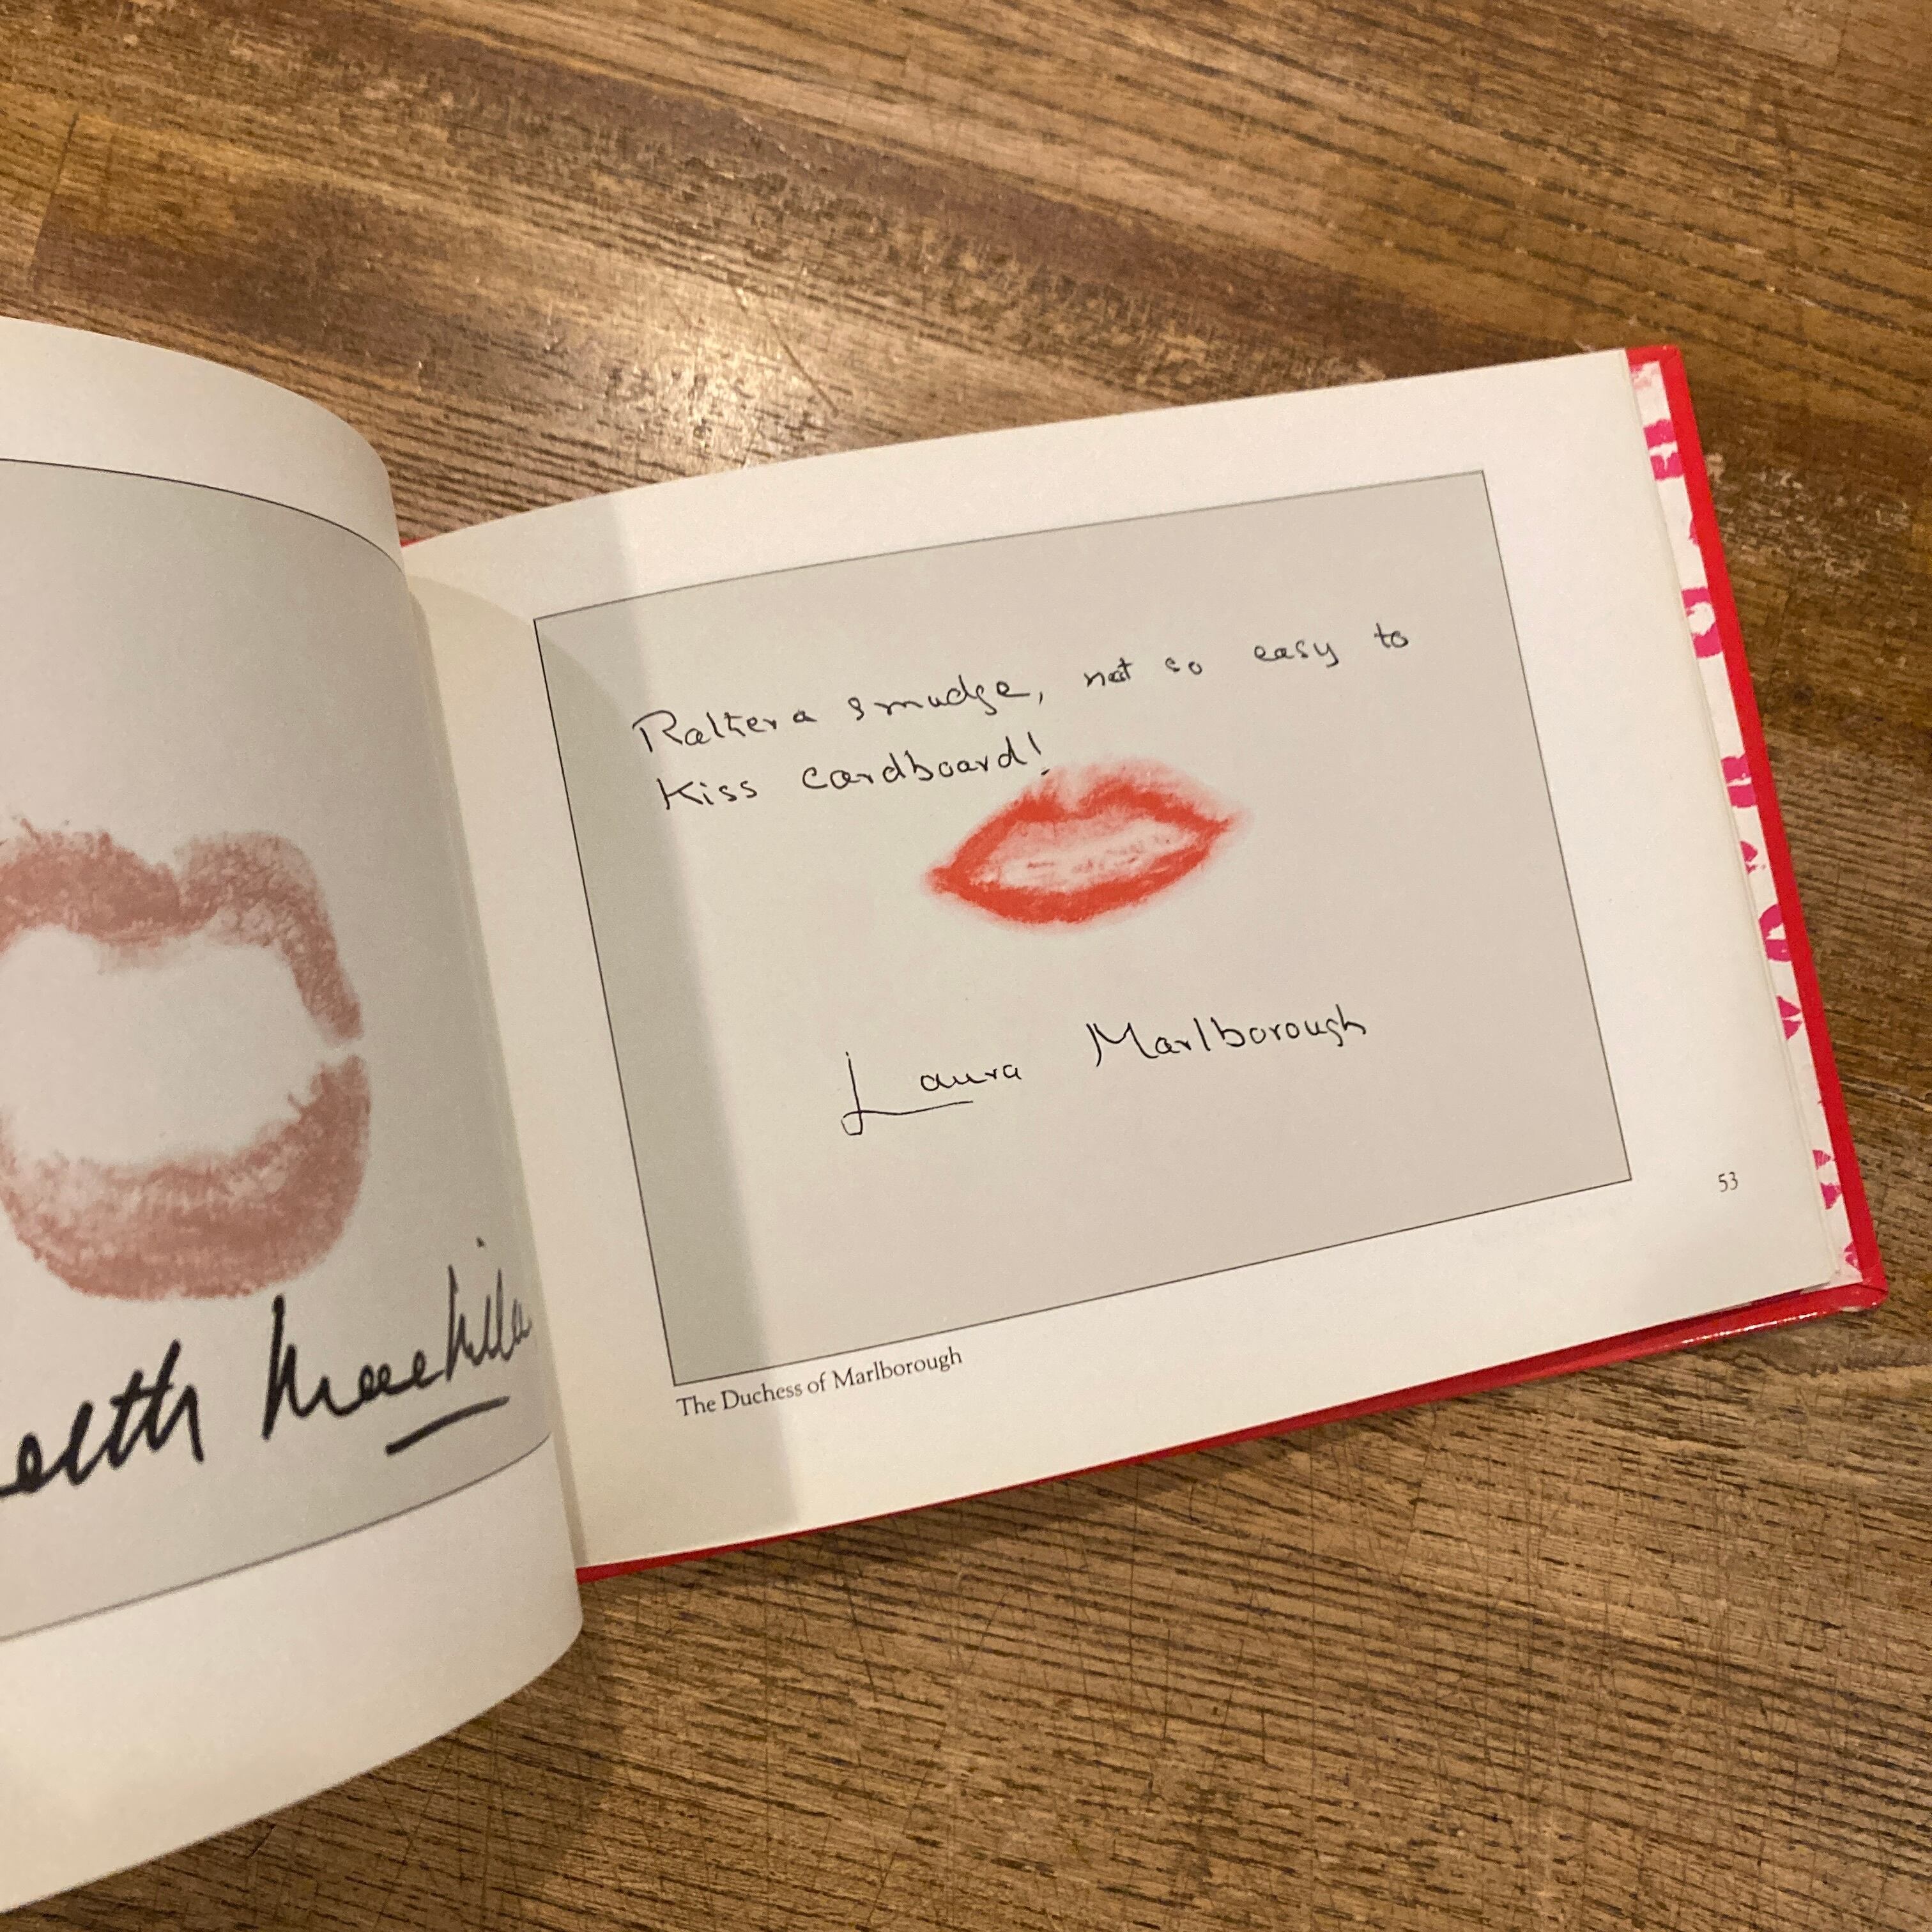 Rather a smudge, not so easy to
Kiss cardboard!
Laura Marlborough
The Duchess of Marlborough
53